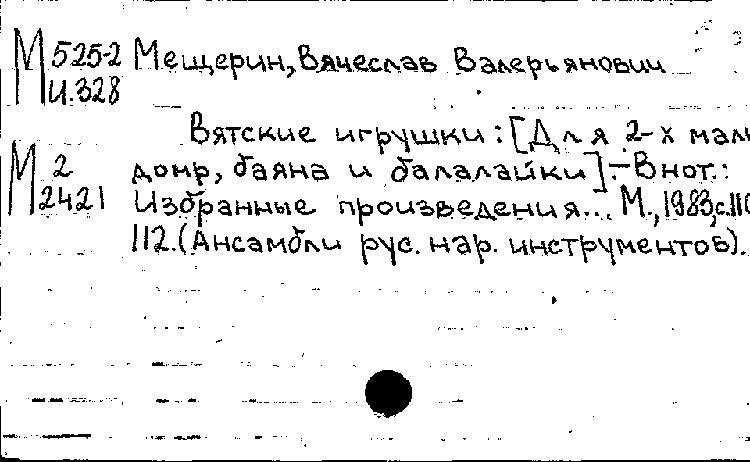 М 525-2 Мещерин, Вячеслав Валерьянович
И.328
Вятские игрушки: [Для 2-х мал
М 2 домр, баяна и балалайки].—В нот.:
2421 Избранные произведения... М., 1983, с.110
112. (Ансамбли рус. нар. инструментов).